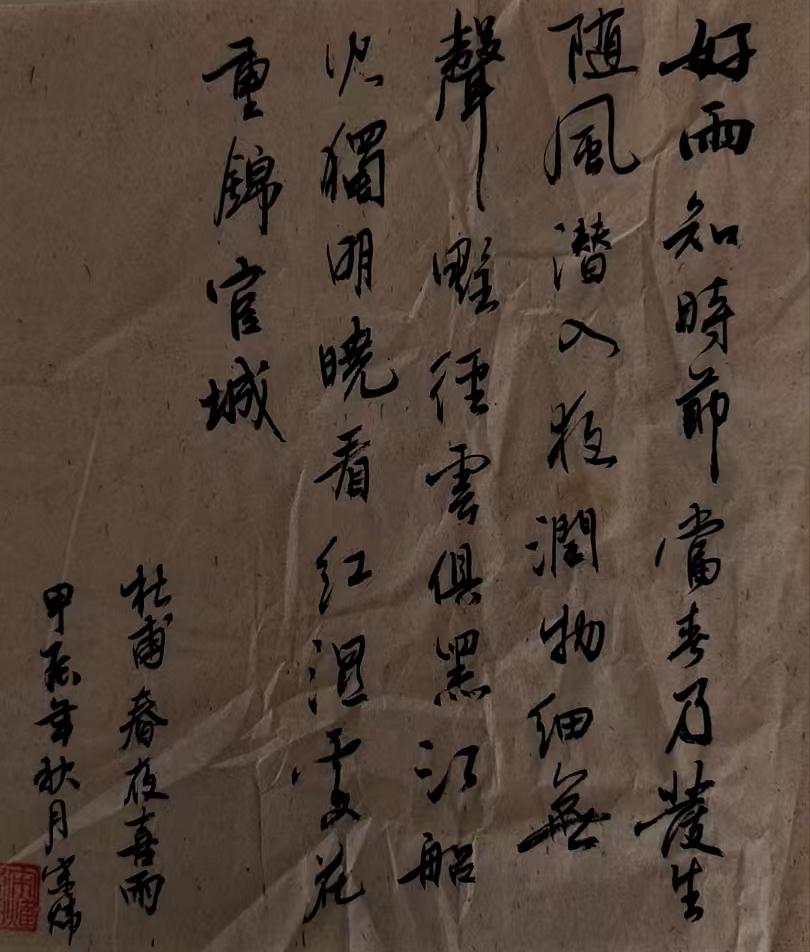 好雨知時節當春乃發生
随風潜入夜潤物细無
聲野徑雲俱黑江船
火獨明曉看红濕處花
重錦官城
杜甫春夜喜雨
甲辰年秋月